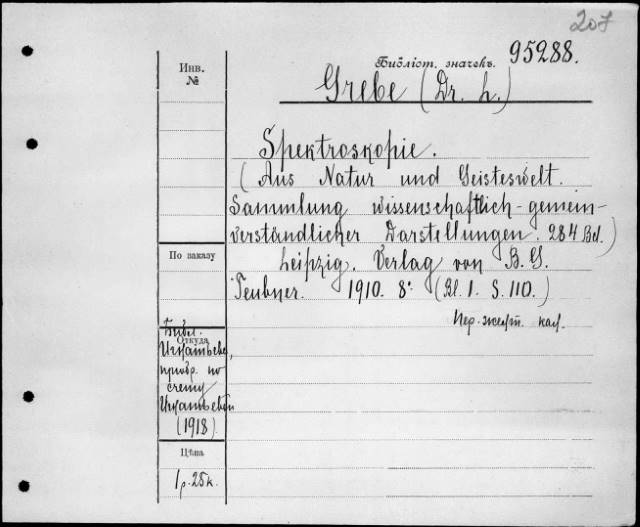 207
Инв.
№
Библіот. значекъ. 95288.
Grebe (Dr. L.)
Spektroskopie.
(Aus Natur und Geisteswelt.
Sammlung wissenschaftlich-gemein-
verständlicher Darstellungen. 284 Bd.)
По заказу
Leipzig. Verlag von B. G.
Teubner. 1910. 8° (Bl. 1. S. 110.)
Пер.
Библ.
Откуда
приобр. по
счету
(1918)
Цѣна
1 р. 25 к.